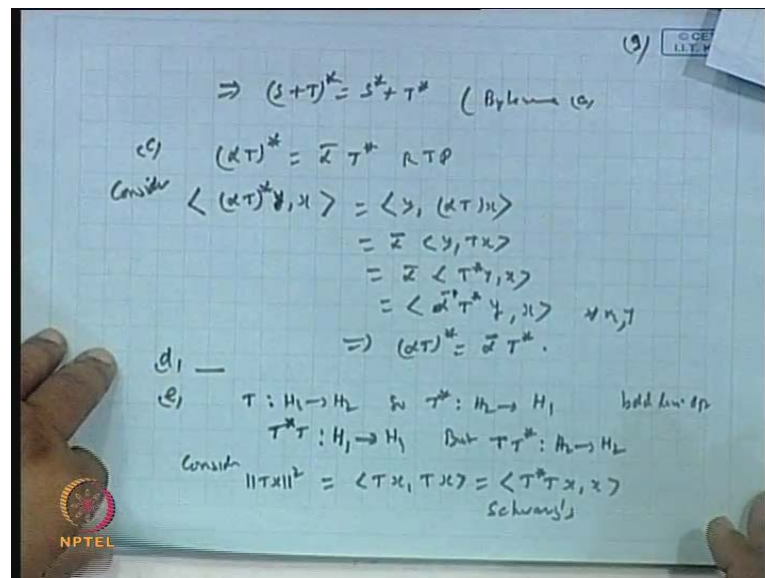 (9)
© CET
I.I.T. K
⇒ (S+T)* = S* + T* ( By lemma (a)
(c) (αT)* = ᾱ T* RTP
Consider < (αT)* y, x > = < y, (αT)x >
= ᾱ < y, Tx >
= ᾱ < T*y, x >
= < ᾱ T* y, x > ∀ x, y
⇒ (αT)* = ᾱ T*.
d, —
e, T : H₁ → H₂ So T* : H₂ → H₁ bdd lin op
T*T : H₁ → H₁ But TT* : H₂ → H₂
Consider
||Tx||² = < Tx, Tx > = < T*Tx, x >
Schwarz's
NPTEL